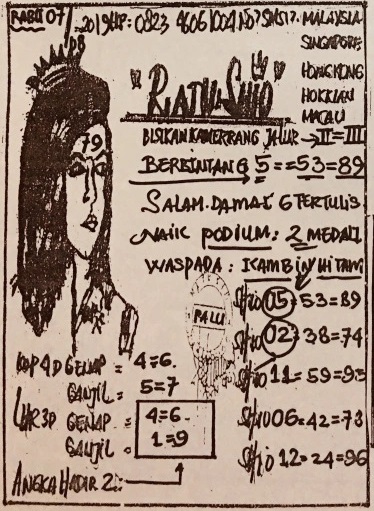 RABU 07
2019HP: 0823 4606 1004 NO? SMS17.
MALAYSIA
SINGAPORE
HONGKONG
HOKKIAN
MACAU
"RATU SHIO"
BISIKAN KAMERRANG JALUR → II = III
BERBINTANG 5 = =53=89
SALAM. DAMAI 6 TERTULIS
NAIK PODIUM: 2 MEDALI
WASPADA: KAMBING HITAM
79
PALU
SHIO 05=53=89
SHIO 02=38=74
SHIO 11=59=95
SHIO 06=42=78
SHIO 12=24=96
KOP 4D GENAP = 4=6.
GANJIL = 5=7
EKOR 3D GENAP = 4=6.
GANJIL = 1=9
ANGKA HADIR 2: